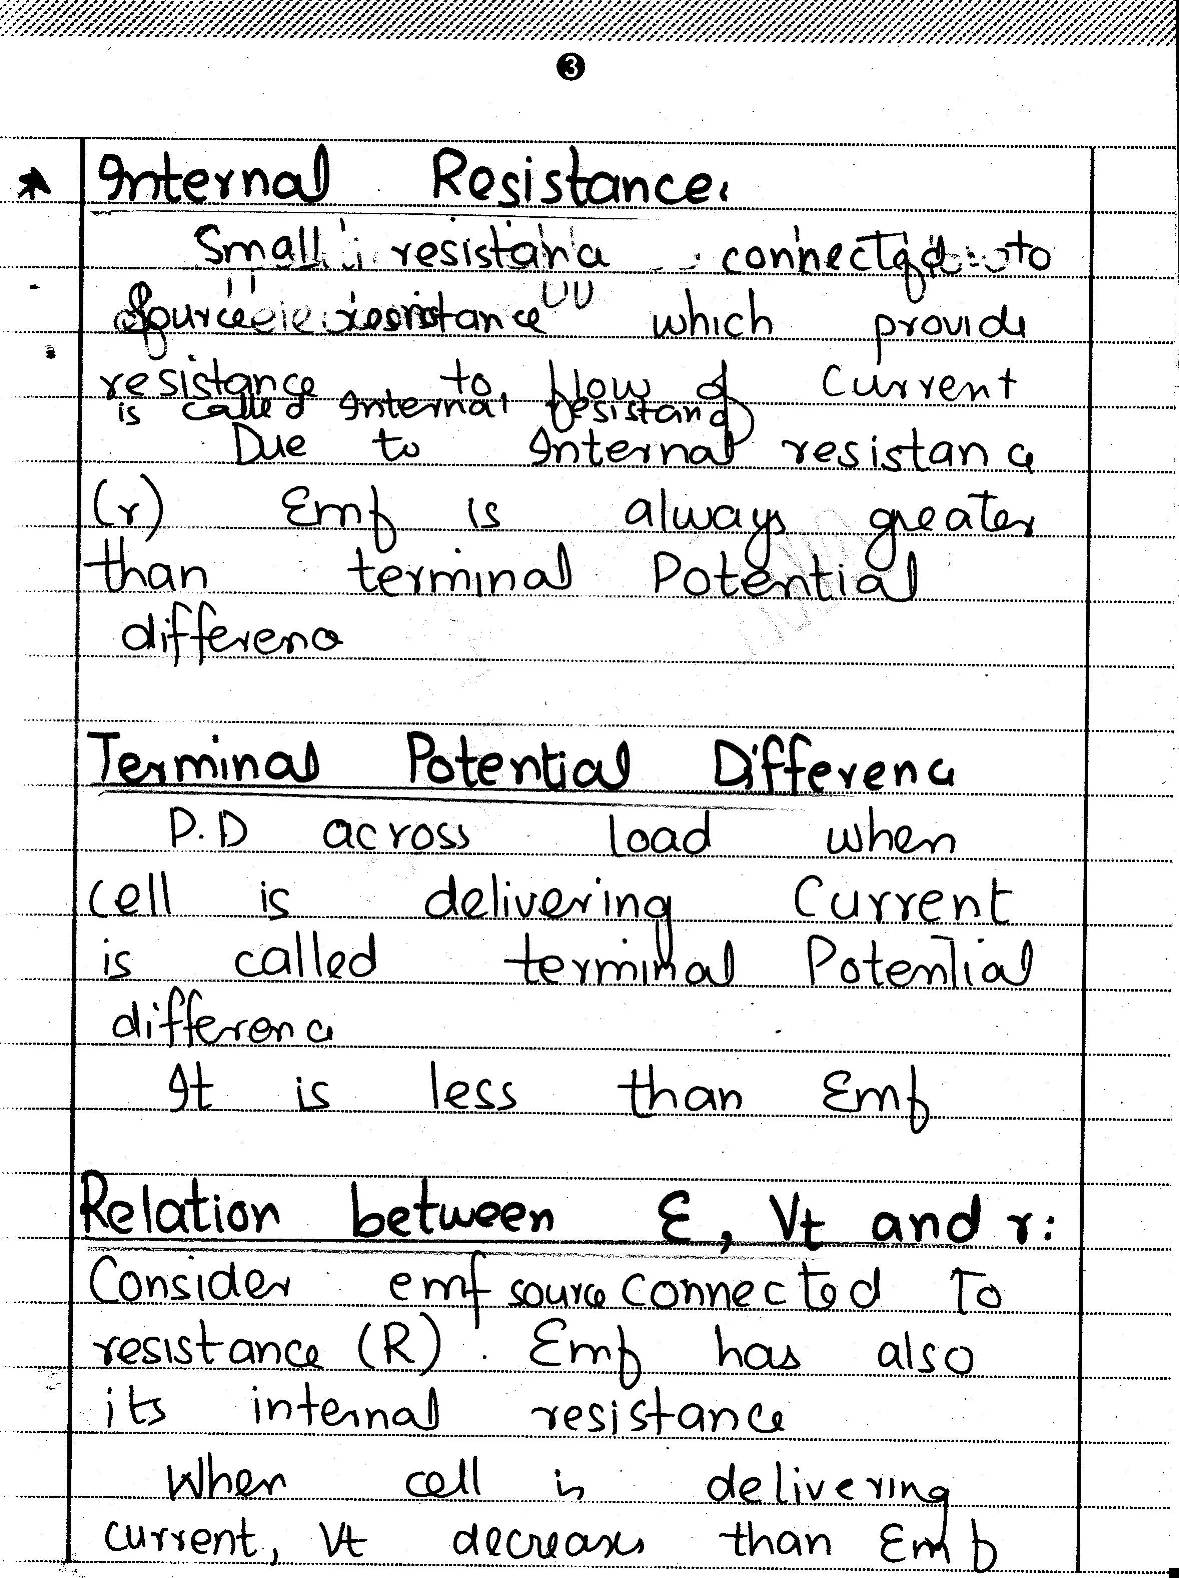 3
Internal Resistance.
Small resistance connected to
Source ie resistance which provide
resistance to flow of Current
is called Internal resistance
Due to Internal resistance
(r) Emf is always greater
than terminal Potential
difference
Terminal Potential Difference
P.D across load when
cell is delivering Current
is called terminal Potential
difference
It is less than Emf
Relation between ε, Vt and r:
Consider emf source connected To
resistance (R). Emf has also
its internal resistance
When cell is delivering
current, Vt decreases than Emf